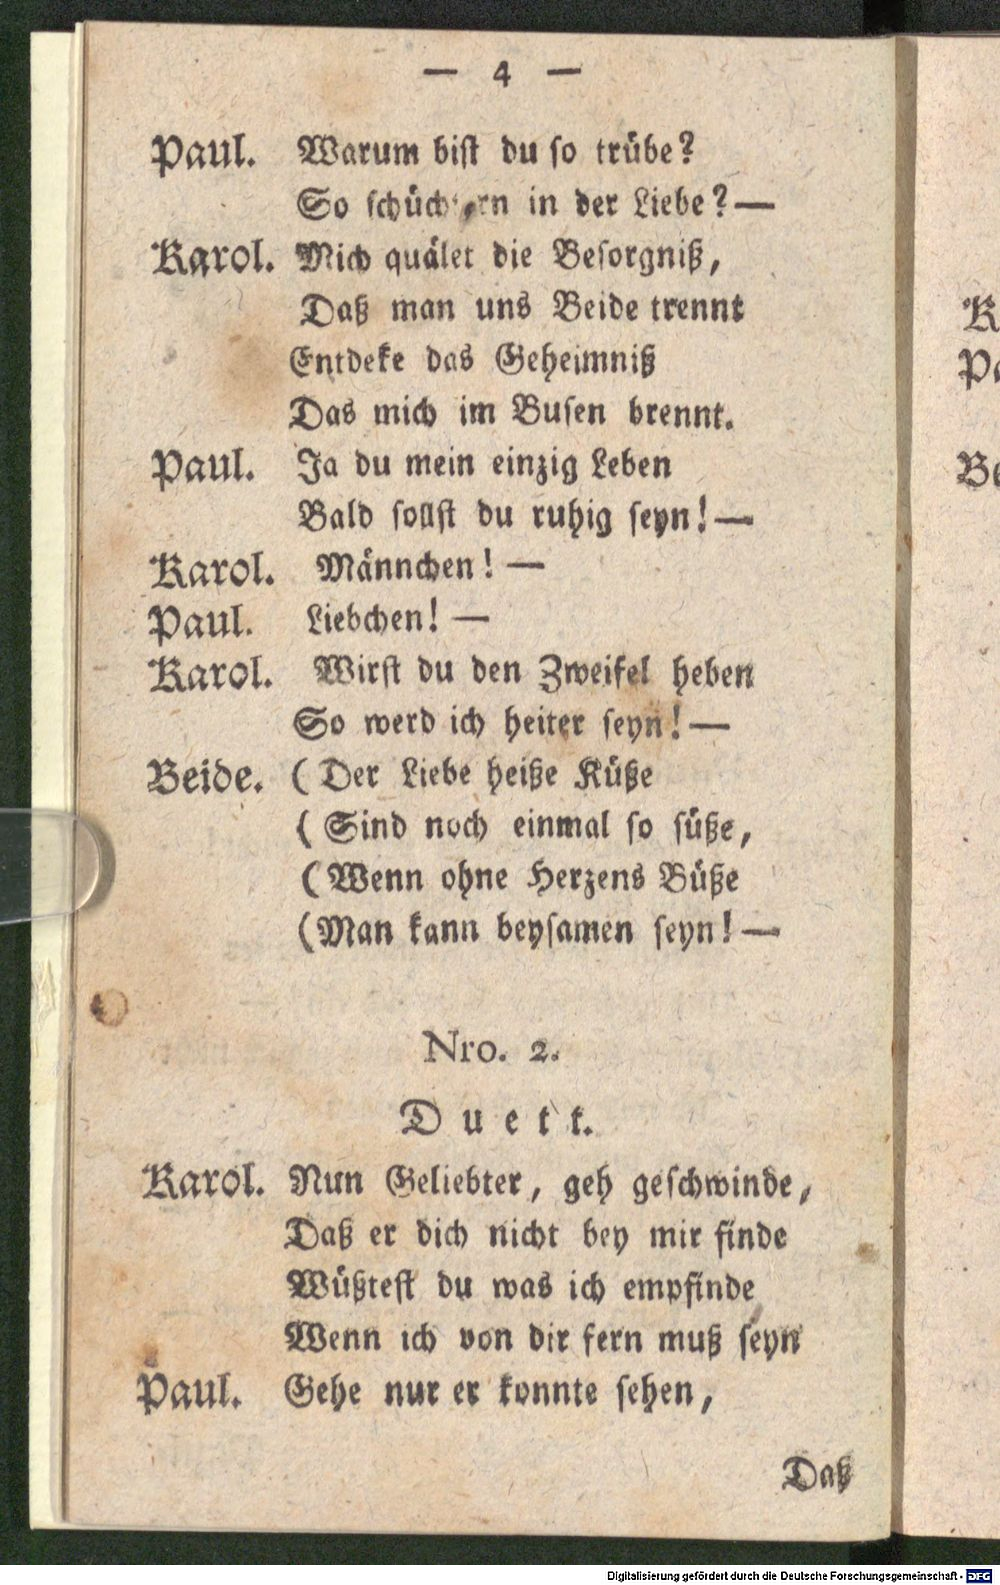 — 4 —
Paul. Warum bist du so trübe?
So schüchtern in der Liebe? —
Karol. Mich quälet die Besorgniß,
Daß man uns Beide trennt
Entdeke das Geheimniß
Das mich im Busen brennt.
Paul. Ja du mein einzig Leben
Bald sollst du ruhig seyn! —
Karol. Männchen! —
Paul. Liebchen! —
Karol. Wirst du den Zweifel heben
So werd ich heiter seyn! —
Beide. ( Der Liebe heiße Küße
( Sind noch einmal so süße,
( Wenn ohne Herzens Büße
( Man kann beysamen seyn! —
Nro. 2.
Duett.
Karol. Nun Geliebter, geh geschwinde,
Daß er dich nicht bey mir finde
Wüßtest du was ich empfinde
Wenn ich von dir fern muß seyn
Paul. Gehe nur er konnte sehen,
Daß
K
Pa
Be
Digitalisierung gefördert durch die Deutsche Forschungsgemeinschaft - DFG